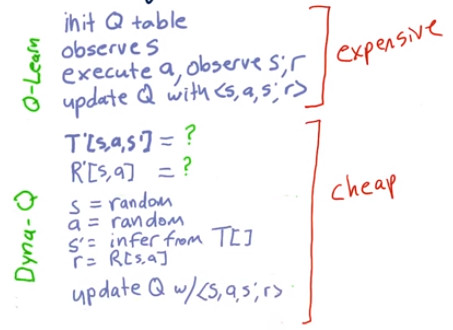 Q-Learn
init Q table
observe s
execute a, observe s', r
update Q with <s, a, s', r>
expensive
Dyna-Q
T'[s,a,s'] = ?
R'[s,a] = ?
s = random
a = random
s' = infer from T[]
r = R[s,a]
update Q w/ <s,a,s',r>
cheap